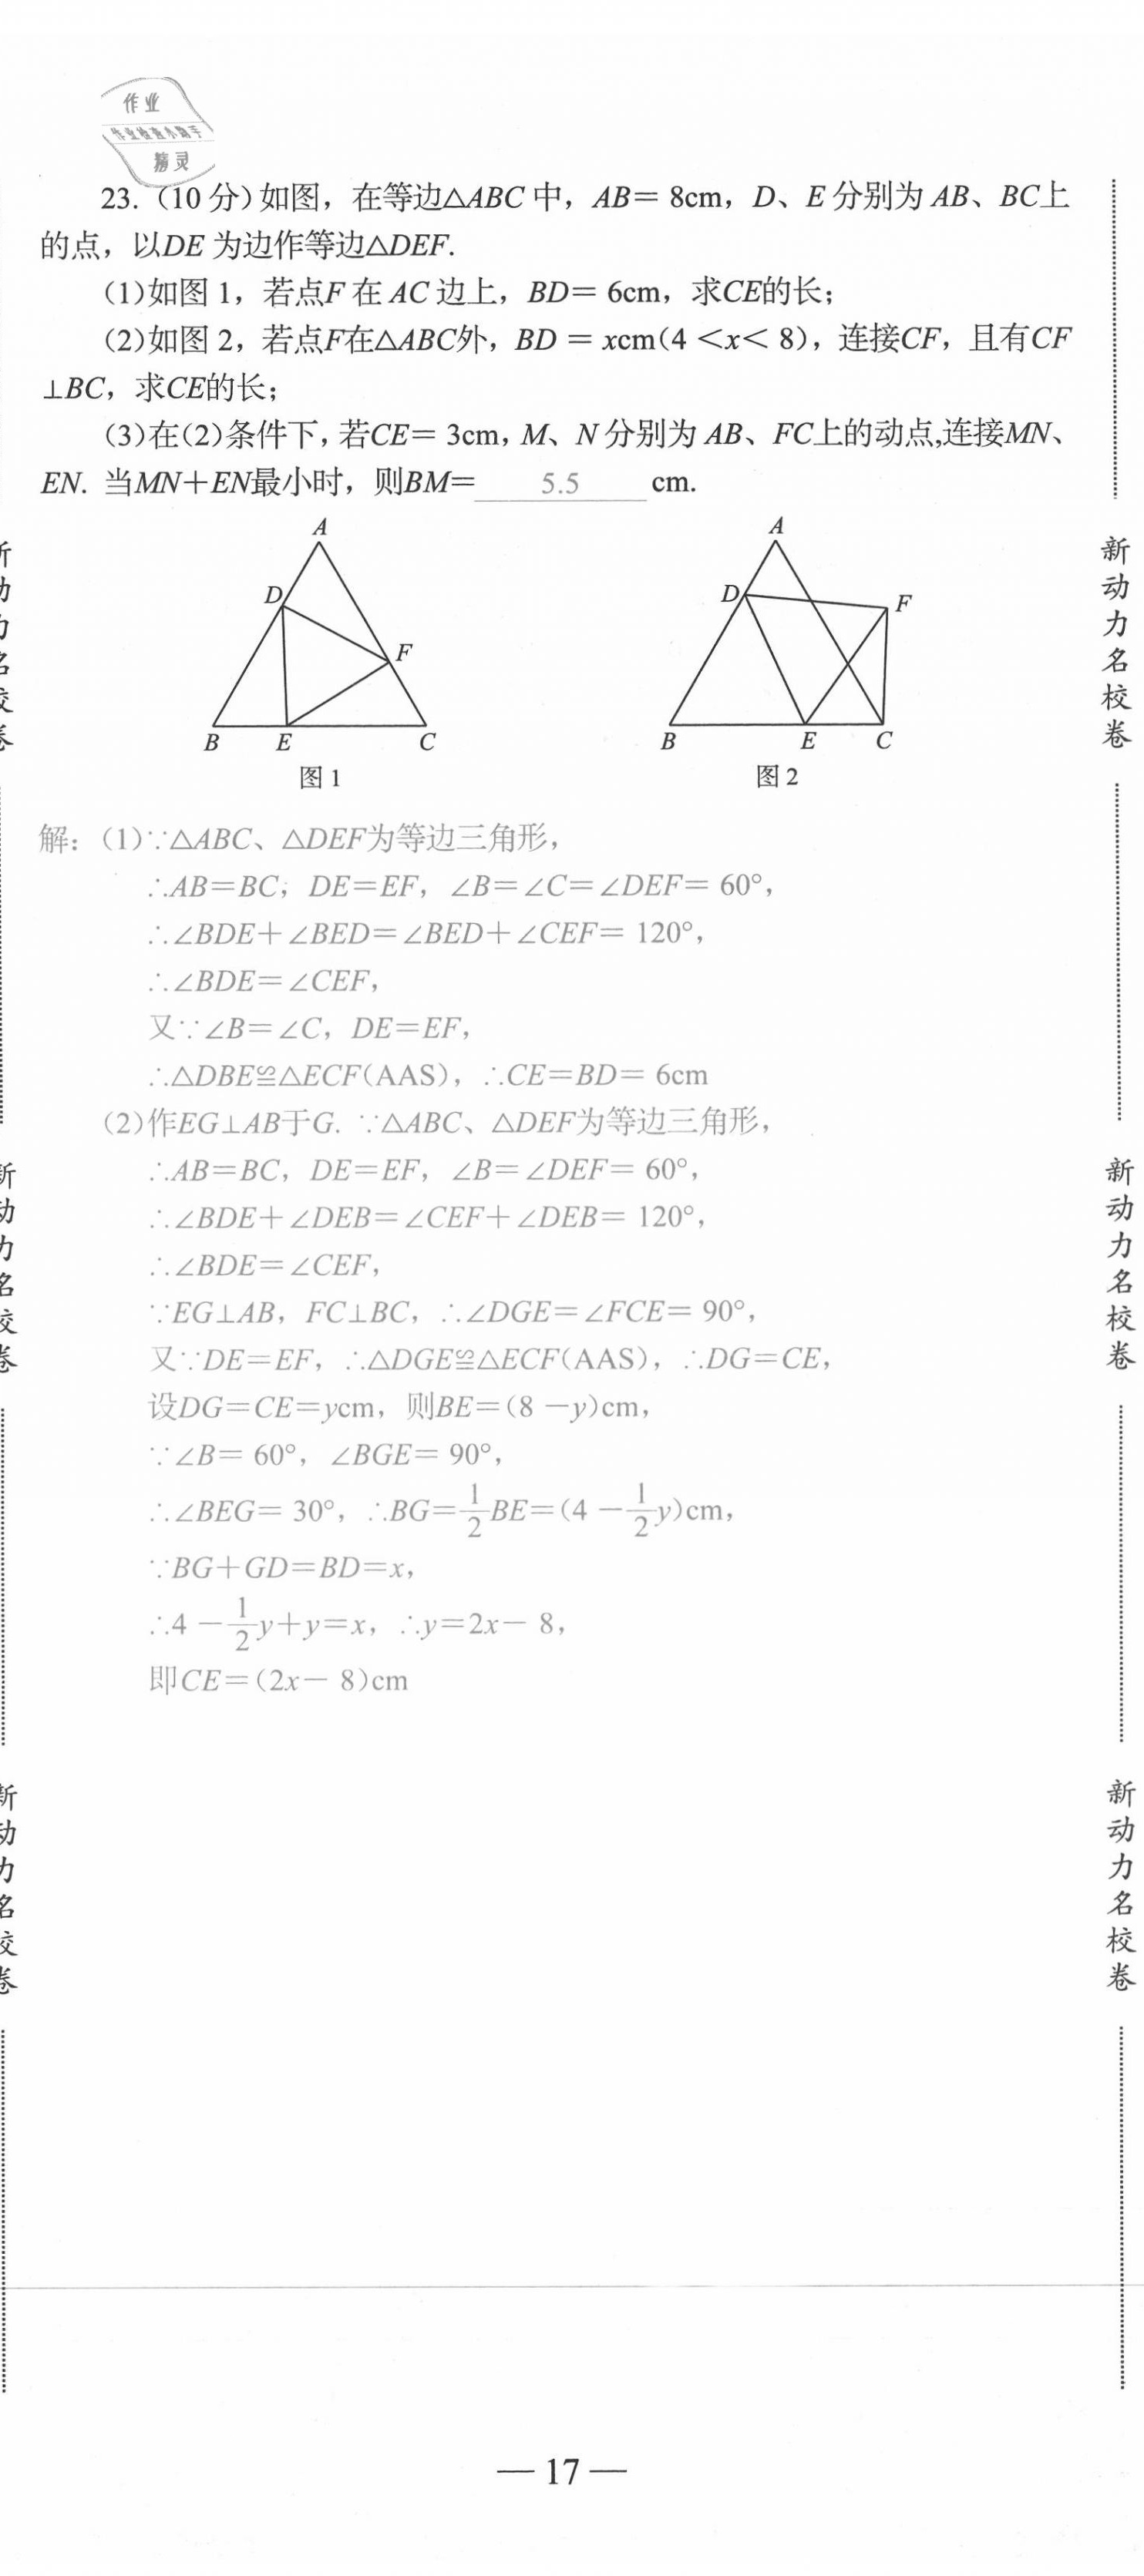 作业
作业检查小助手
精灵
23. (10 分) 如图，在等边△ABC 中，AB= 8cm，D、E 分别为 AB、BC上
的点，以DE 为边作等边△DEF.
(1)如图 1，若点F 在 AC 边上，BD= 6cm，求CE的长；
(2)如图 2，若点F在△ABC外，BD = xcm(4 <x< 8)，连接CF，且有CF
⊥BC，求CE的长；
(3)在(2)条件下，若CE= 3cm，M、N 分别为 AB、FC上的动点,连接MN、
EN. 当MN+EN最小时，则BM= 5.5 cm.
A
D
F
B E C
图 1
A
D
F
B E C
图 2
解：(1)∵△ABC、△DEF为等边三角形，
∴AB=BC；DE=EF，∠B=∠C=∠DEF= 60°，
∴∠BDE+∠BED=∠BED+∠CEF= 120°，
∴∠BDE=∠CEF，
又∵∠B=∠C，DE=EF，
∴△DBE≌△ECF(AAS)，∴CE=BD= 6cm
(2)作EG⊥AB于G. ∵△ABC、△DEF为等边三角形，
∴AB=BC，DE=EF，∠B=∠DEF= 60°，
∴∠BDE+∠DEB=∠CEF+∠DEB= 120°，
∴∠BDE=∠CEF，
∵EG⊥AB，FC⊥BC，∴∠DGE=∠FCE= 90°，
又∵DE=EF，∴△DGE≌△ECF(AAS)，∴DG=CE，
设DG=CE=ycm，则BE=(8 −y)cm，
∵∠B= 60°，∠BGE= 90°，
∴∠BEG= 30°，∴BG=1/2BE=(4 −1/2y)cm，
∵BG+GD=BD=x，
∴4 −1/2y+y=x，∴y=2x− 8，
即CE=(2x− 8)cm
新动力名校卷
新动力名校卷
新动力名校卷
新动力名校卷
新动力名校卷
新动力名校卷
— 17 —